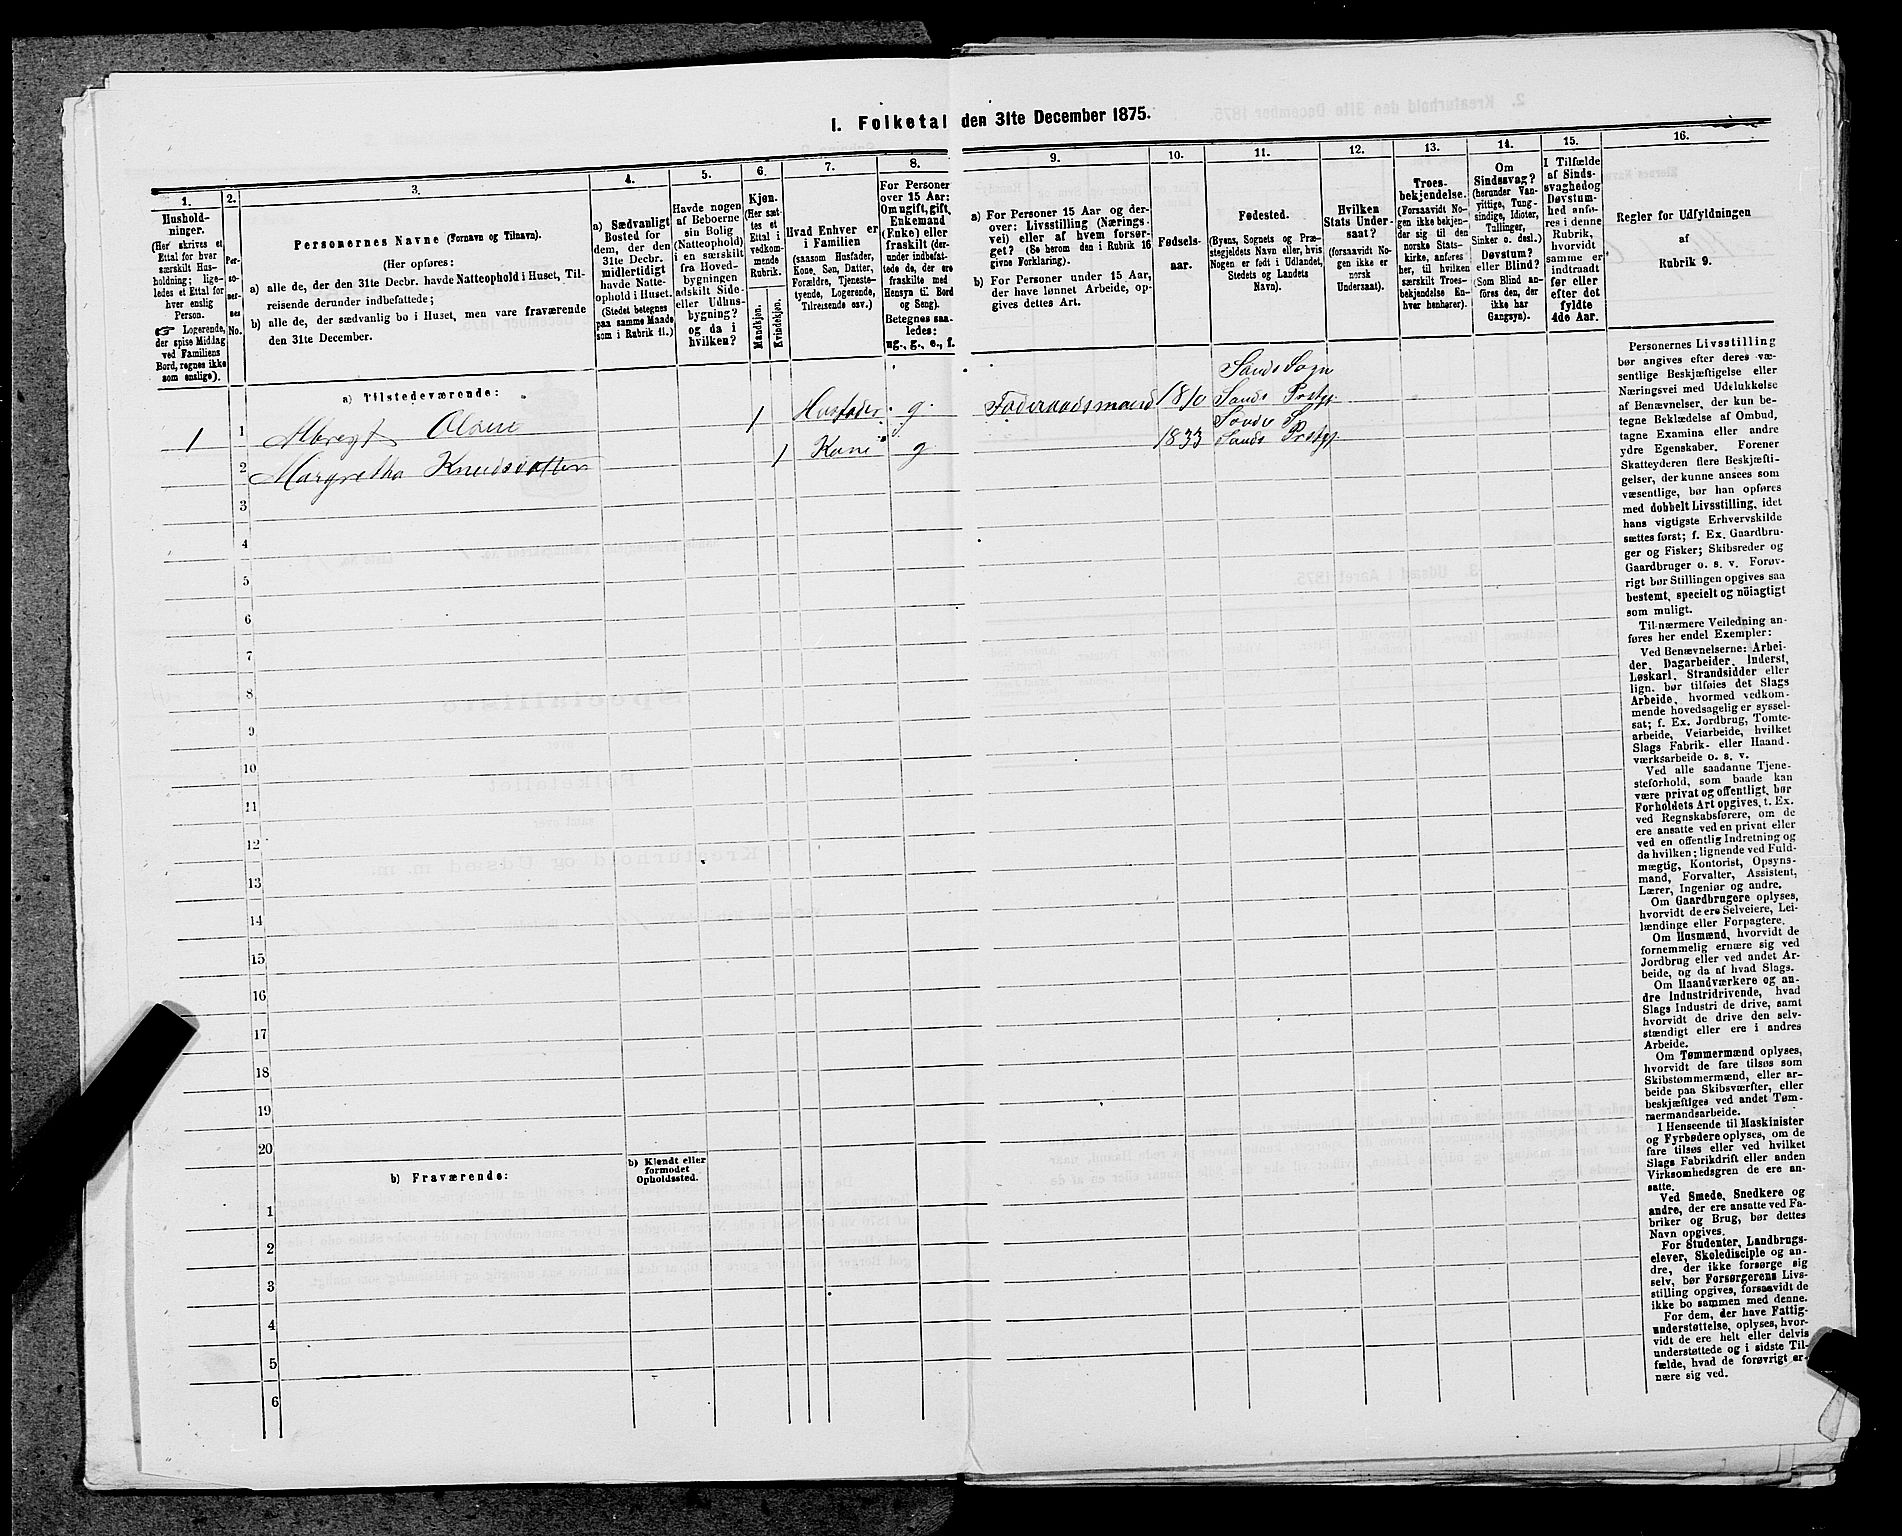 I. Folketal den 31te December 1875.
1.
Hushold-
ninger.
(Her skrives et
Ettal for hver
særskilt Hus-
holdning; lige-
ledes et Ettal for
hver enslig
Person.
☞ Logerende,
der spise Middag
ved Familiens
Bord, regnes ikke
som enslige).
2.
Per-
so-
ner-
nes
No.
3.
Personernes Navne (Fornavn og Tilnavn).
(Her opføres:
a) alle de, der den 31te Decbr. havde Natteophold i Huset, Til-
reisende derunder indbefattede;
b) alle de, der sædvanlig bo i Huset, men vare fraværende
den 31te December.
4.
a) Sædvanligt
Bosted for
dem, der den
31te Decbr.
midlertidigt
havde Natte-
ophold i Huset.
(Stedet betegnes
paa samme Maade
som i Rubrik 11.)
5.
Havde nogen
af Beboerne
sin Bolig
(Natteophold)
i en særskilt
fra Hoved-
bygningen
adskilt Side-
eller Udhus-
bygning?
og da i
hvilken?
6.
Kjøn.
(Her sæt-
tes et
Ettal i
vedkom-
mende
Rubrik.
Mandkjøn.
Kvindekjøn.
7.
Hvad Enhver er
i Familien
(saasom Husfader,
Kone, Søn, Datter,
Forældre, Tjeneste-
tyende, Logerende,
Tilreisende osv.)
8.
For Personer
over 15 Aar:
Om ugift, gift,
Enkemand
(Enke) eller
fraskilt (der-
under indbefat-
tede de, der ere
fraskilte med
Hensyn til Bord
og Seng).
Betegnes saa-
ledes:
ug., g., e., f.
9.
a) For Personer 15 Aar og der-
over: Livsstilling (Nærings-
vei) eller af hvem forsør-
get? (Se herom den i Rubrik 16
givne Forklaring).
b) For Personer under 15 Aar,
der have lønnet Arbeide, op-
gives dettes Art.
10.
Fødsels-
aar.
11.
Fødested.
(Byens, Sognets og Præ-
stegjeldets Navn eller, hvis
Nogen er født i Udlandet,
Stedets og Landets
Navn).
12.
Hvilken
Stats Under-
saat?
(forsaavidt No-
gen ikke er
norsk
Undersaat).
13.
Troes-
bekjendelse.
(Forsaavidt No-
gen ikke bekjen-
der sig til den
norske Stats-
kirke, anføres
her, til hvilken
særskilt Troes-
bekjendelse En-
hver henhører).
14.
Om
Sindssvag?
(herunder Van-
vittige, Tung-
sindige, Idioter,
Tullinger,
Sinker o. desl.)
Døvstum?
eller Blind?
(Som Blind an-
føres den, der
ikke har
Gangsyn).
15.
I Tilfælde
af Sinds-
svaghed og
Døvstum-
hed anfø-
res i denne
Rubrik,
hvorvidt
samme er
indtraadt
før eller
efter det
fyldte
4de Aar.
16.
Regler for Udfyldningen
af
Rubrik 9.
a) Tilstedeværende:
Sands Sogn
1 1 Albregt Olsen 1 Husfader g. Føderaadsmand 1810 Sands Prstgj
Sands S
2 Margretha Knudsdatter 1 Kone g 1833 Sands Prstgj
3
4
5
6
7
8
9
10
11
12
13
14
15
16
17
18
19
20
b) Fraværende:
b) Kjendt eller
formodet
Opholdssted.
1
2
3
4
5
6
Personernes Livsstilling
bør angives efter deres væ-
sentlige Beskjæftigelse eller
Næringsvei med Udelukkelse
af Benævnelser, der kun be-
tegne Beklædelse af Ombud,
tagne Examina eller andre
ydre Egenskaber. Forener
Skatteyderen flere Beskjæfti-
gelser, der kunne ansees som
væsentlige, bør han opføres
med dobbelt Livsstilling, idet
hans vigtigste Erhvervskilde
sættes først; f. Ex. Gaardbru-
ger og Fisker; Skibsreder og
Gaardbruger o. s. v. Forøv-
rigt bør Stillingen opgives saa
bestemt, specielt og nöiagtigt
som muligt.
Til nærmere Veiledning an-
føres her endel Exempler:
Ved Benævnelserne: Arbei-
der, Dagarbeider, Inderst,
Løskarl, Strandsidder eller
lign. bør tilføies det Slags
Arbeide, hvormed vedkom-
mende hovedsagelig er syssel-
sat; f. Ex. Jordbrug, Tomte-
arbeide, Veiarbeide, hvilket
Slags Fabrik- eller Haand-
værksarbeide o. s. v.
Ved alle saadanne Tjene-
steforhold, som baade kan
være privat og offentligt, bør
Forholdets Art opgives, t. Ex.
ved Regnskabsførere, om de
ere ansatte ved en privat eller
ved en offentlig Indretning og
da hvilken; lignende ved Fuld-
mægtig, Kontorist, Opsyns-
mand, Forvalter, Assistent,
Lærer, Ingeniør og andre.
Om Gaardbrugere oplyses,
hvorvidt de ere Selveiere, Lei-
lændinge eller Forpagtere.
Om Husmænd, hvorvidt de
fornemmelig ernære sig ved
Jordbrug eller ved andet Ar-
beide, og da af hvad Slags.
Om Haandværkere og an-
dre Industridrivende, hvad
Slags Industri de drive, samt
hvorvidt de drive den selv-
stændigt eller ere i andres
Arbeide.
Om Tømmermænd oplyses,
hvorvidt de fare tilsøs som
Skibstømmermænd, eller ar-
beide paa Skibsværfter, eller
beskjæftiges ved andet Tøm-
mermandsarbeide.
I Henseende til Maskinister
og Fyrbødere oplyses, om de
fare tilsøs eller ved hvilket
Slags Fabrikdrift eller anden
Virksomhedsgren de ere an-
satte.
Ved Smede, Snedkere og
andre, der ere ansatte ved Fa-
briker og Brug, bør dettes
Navn opgives.
For Studenter, Landbrugs-
elever, Skoledisciple og an-
dre, der ikke forsørge sig
selv, bør Forsørgerens Livs-
stilling opgives, forsaavidt de
ikke bo sammen med denne.
For dem, der have Fattig-
understøttelse, oplyses, hvor-
vidt de ere helt eller delvis
understøttede og i sidste Til-
fælde, hvad de forøvrigt er-
nære sig ved.